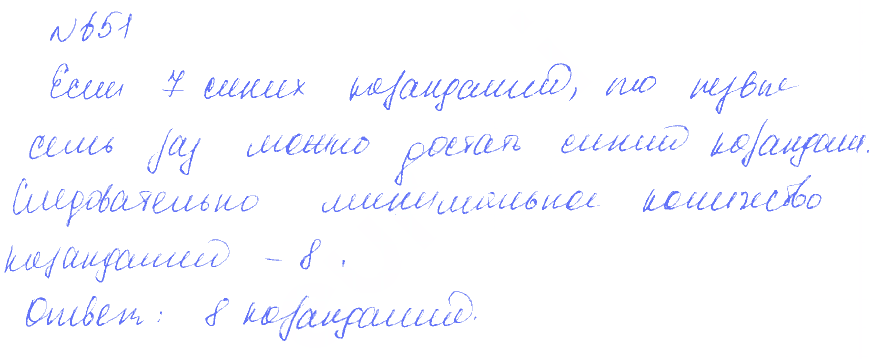 №651
Если 7 синих карандашей, то первые
семь раз можно достать синий карандаш.
Следовательно минимальное количество
карандашей – 8.
Ответ: 8 карандашей.